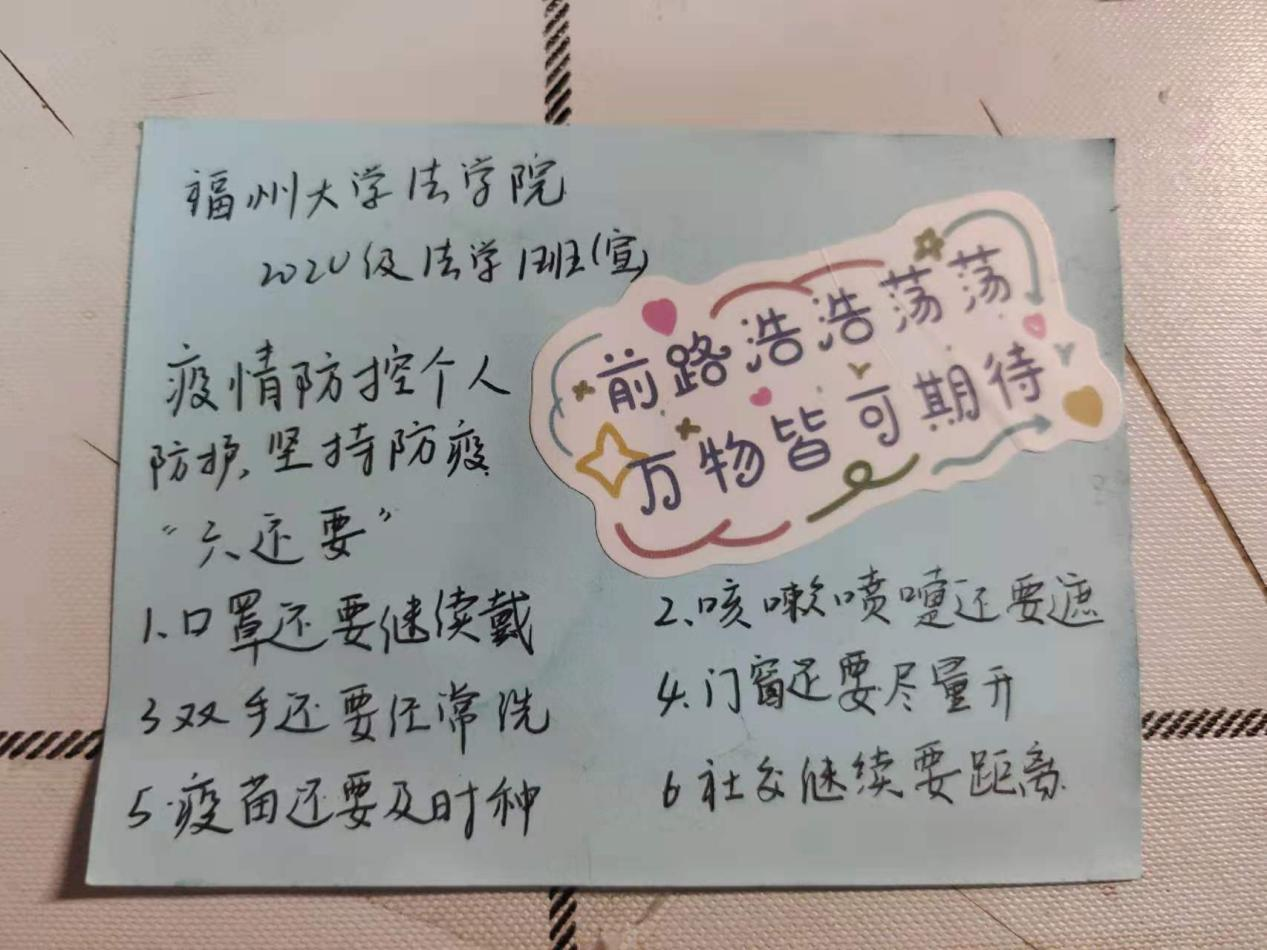 福州大学法学院
2020级法学1班(宣)
前路浩浩荡荡
万物皆可期待
疫情防控个人
防护、坚持防疫
“六还要”
1、口罩还要继续戴
2、咳嗽喷嚏还要遮
3双手还要经常洗
4、门窗还要尽量开
5.疫苗还要及时种
6社交继续要距离